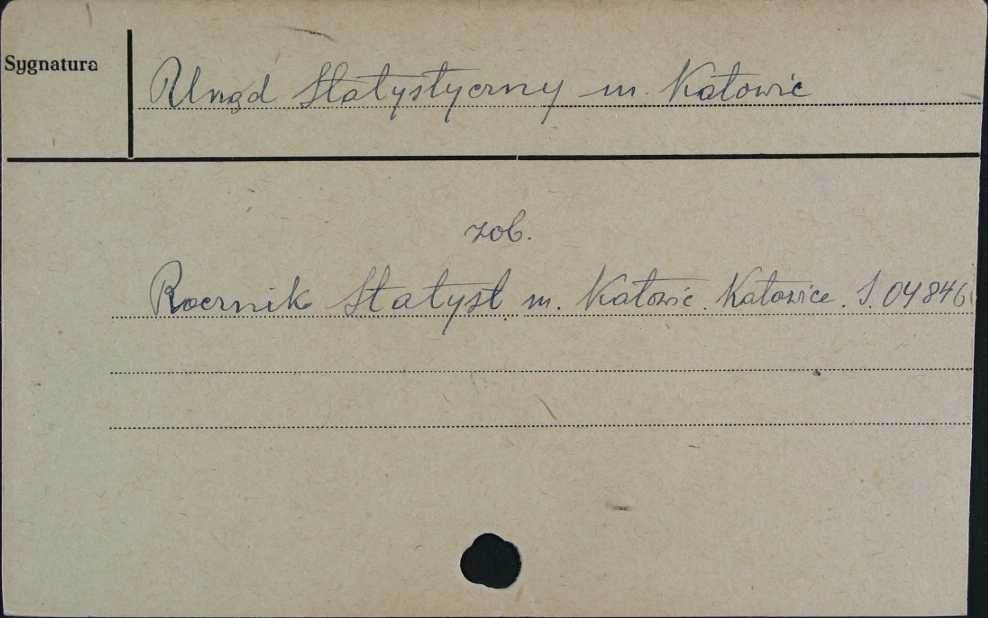 Sygnatura
Urząd Statystyczny m. Katowic
zob.
Rocznik Statyst. m. Katowic. Katowice. S. 04846